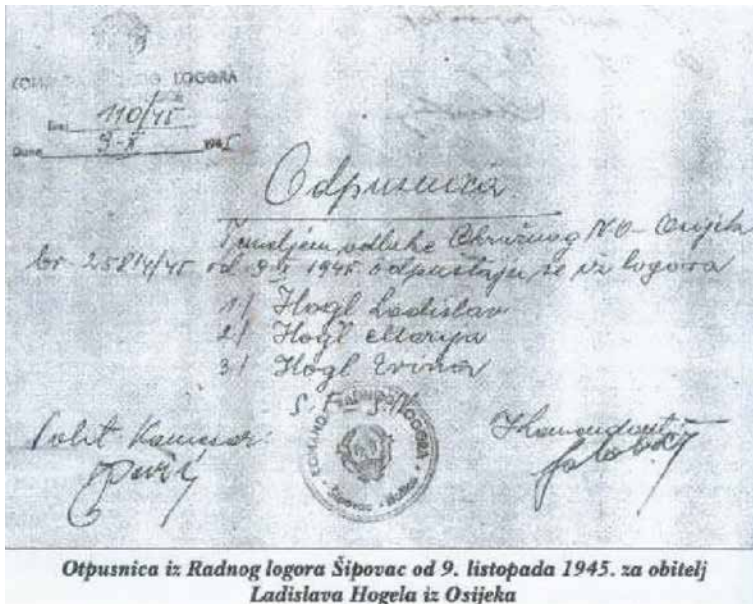 LOGORA
Broj 110/45
9-X 1945
Odpusnica
Temeljem odluke Okružnog NO-Osijek
br. 25814/45 od 9.X 1945 odpuštaju se iz logora
1/ Hogl Ladislav
2/ Hogl Marija
3/ Hogl
S. F. - S. N.
Polit. Komesar:
Komandant:
KOMANDA LOGORA
Šipovac
Otpusnica iz Radnog logora Šipovac od 9. listopada 1945. za obitelj
Ladislava Hogela iz Osijeka